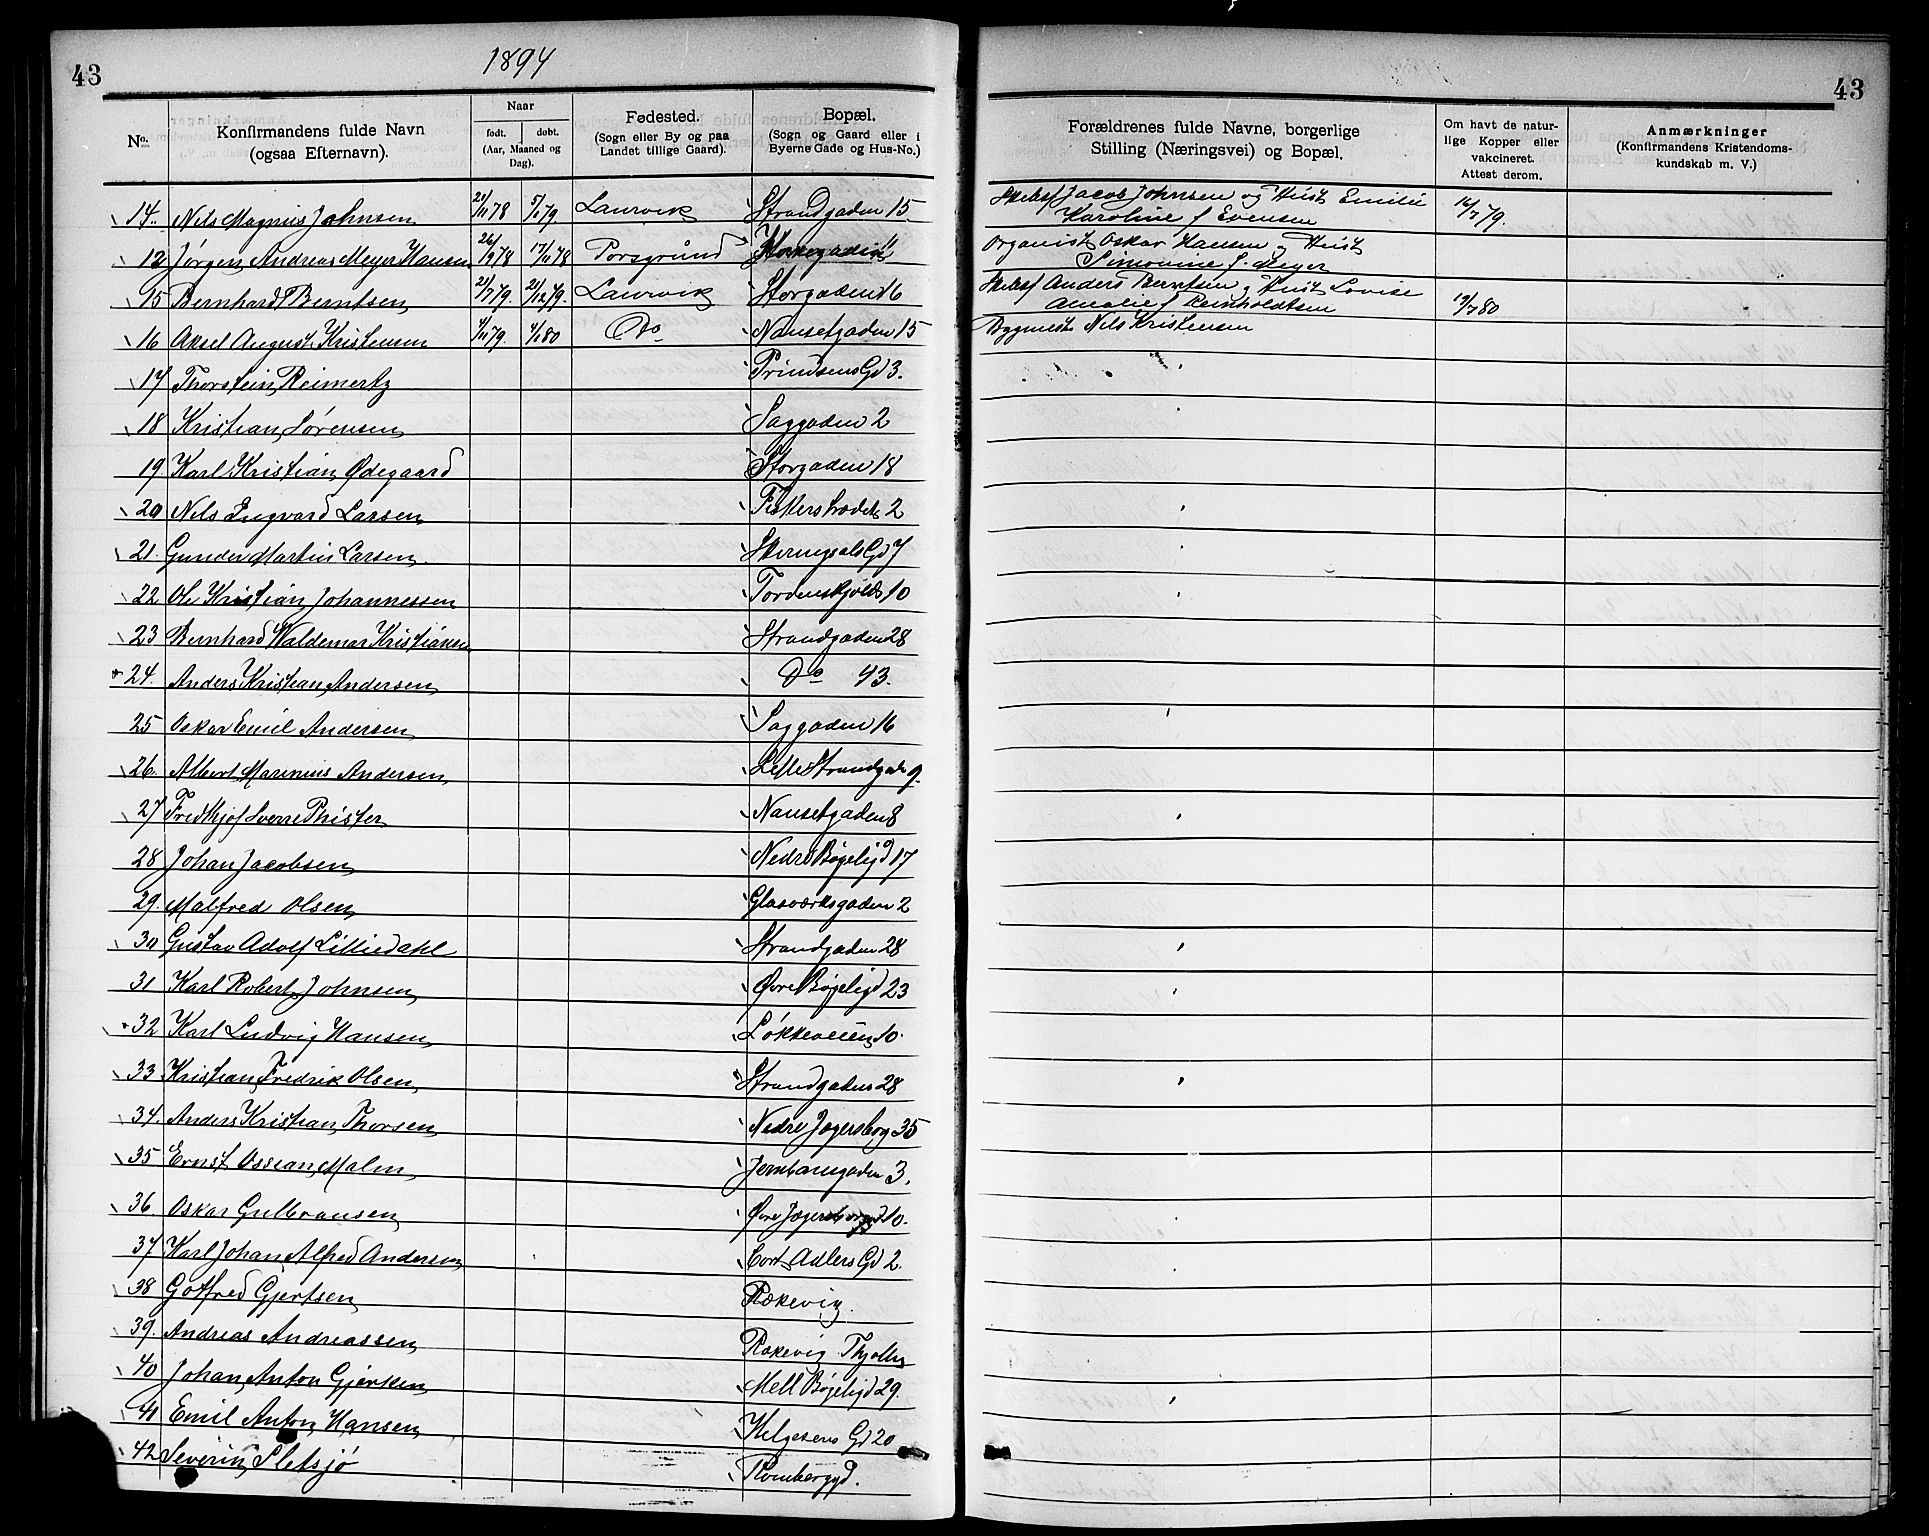 43
1894
No. Konfirmandens fulde Navn (ogsaa Efternavn). Naar født. døbt. (Aar, Maaned og Dag). Fødested. (Sogn eller By og paa Landet tillige Gaard). Bopæl. (Sogn og Gaard eller i Byerne Gade og Hus-No.)
14. Nels Magnus Johnsen 21/11 78 5/1 79 Laurvik Strandgaden 15
12 Jørgen Andreas Meyer Hansen 26/9 78 17/11 78 Porsgrund
15 Bernhard Berntsen 21/7 79. 21/12 79. Laurvik Storgaden 16
16 Aksel August Kristensen 4/11 79. 4/1 80 Do Nansetgaden 15
17 Thorstein Reimertz Prindsens Gd 3.
18 Kristian Sørensen Saggaden 2
19. Karl Kristian Ødegaard Storgaden 18
20 Nels Ingvard Larsen Fiskerstrædet 2
21. Gunder Martin Larsen Skiringsals Gd 7
22 Ole Kristian Johannessen Tordenskjolds 10
23 Bernhard Waldemar Kristiansen Strandgaden 28
24. Anders Kristian Andersen Do 43.
25 Oskar Emil Andersen Saggaden 16
26. Albert Marinius Andersen Lille Strandgade 9.
27 Fredthjof Sverre Phister Nansetgaden 8
28 Johan Jacobsen Nedre Bøgeligd 17
29. Malfred Olsen Glasværksgaden 2
30 Gustav Adolf Lilliedahl Strandgaden 28
31 Karl Robert Johnsen Øvre Bøgeligd 23
32 Karl Ludvig Hansen Løkkeveien 10.
33 Kristian Fredrik Olsen Strandgaden 28
34. Anders Kristian Thorsen Nedre Jegersborg 35
35 Ernst Ossian Malen Jernbanegaden 3.
36. Oskar Gulbransen Øvre Jægersborggd 10.
37 Karl Johan Alfred Andersen Cort Adlers Gd 2.
38 Gotfred Gjertsen Rækevig.
39. Andreas Andreassen Rækevig Thjølling
40 Johan Anton Gjerken Mell Bøgeligd 29.
41 Emil Anton Hansen Helgesens Gd 20
42 Severin Sletsjø Romberggd.
43
Forældrenes fulde Navne, borgerlige Stilling (Næringsvei) og Bopæl. Om havt de naturlige Kopper eller vakcineret. Attest derom. Anmærkninger (Konfirmandens Kristendomskundskab m. V.)
Jacob Johnsen og Hust Emilie
Karoline f Evensen 16/7 79.
Organist Oskar Hansen og Hust
Simonine f. Meyer
Anders Berntsen og Hust Lovise
Amalie f Reinholdtsen 19/7 80
Bygmest Nils Kristensen